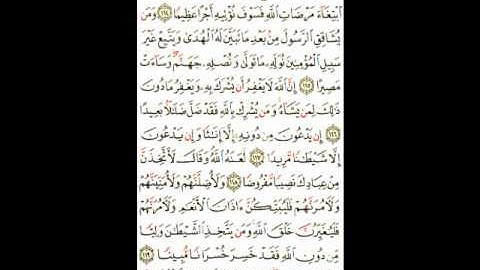 ٱبۡتِغَآءَ مَرۡضَاتِ ٱللَّهِ فَسَوۡفَ نُؤۡتِيهِ أَجۡرًا عَظِيمٗا ١١٤ وَمَن
يُشَاقِقِ ٱلرَّسُولَ مِنۢ بَعۡدِ مَا تَبَيَّنَ لَهُ ٱلۡهُدَىٰ وَيَتَّبِعۡ غَيۡرَ
سَبِيلِ ٱلۡمُؤۡمِنِينَ نُوَلِّهِۦ مَا تَوَلَّىٰ وَنُصۡلِهِۦ جَهَنَّمَۖ وَسَآءَتۡ
مَصِيرًا ١١٥ إِنَّ ٱللَّهَ لَا يَغۡفِرُ أَن يُشۡرَكَ بِهِۦ وَيَغۡفِرُ مَا دُونَ
ذَٰلِكَ لِمَن يَشَآءُۚ وَمَن يُشۡرِكۡ بِٱللَّهِ فَقَدۡ ضَلَّ ضَلَٰلَۢا بَعِيدًا
١١٦ إِن يَدۡعُونَ مِن دُونِهِۦٓ إِلَّآ إِنَٰثٗا وَإِن يَدۡعُونَ
إِلَّا شَيۡطَٰنٗا مَّرِيدٗا ١١٧ لَّعَنَهُ ٱللَّهُۘ وَقَالَ لَأَتَّخِذَنَّ
مِنۡ عِبَادِكَ نَصِيبٗا مَّفۡرُوضٗا ١١٨ وَلَأُضِلَّنَّهُمۡ وَلَأُمَنِّيَنَّهُمۡ
وَلَأٓمُرَنَّهُمۡ فَلَيُبَتِّكُنَّ ءَاذَانَ ٱلۡأَنۡعَٰمِ وَلَأٓمُرَنَّهُمۡ
فَلَيُغَيِّرُنَّ خَلۡقَ ٱللَّهِۚ وَمَن يَتَّخِذِ ٱلشَّيۡطَٰنَ وَلِيّٗا
مِّن دُونِ ٱللَّهِ فَقَدۡ خَسِرَ خُسۡرَانٗا مُّبِينٗا ١١٩